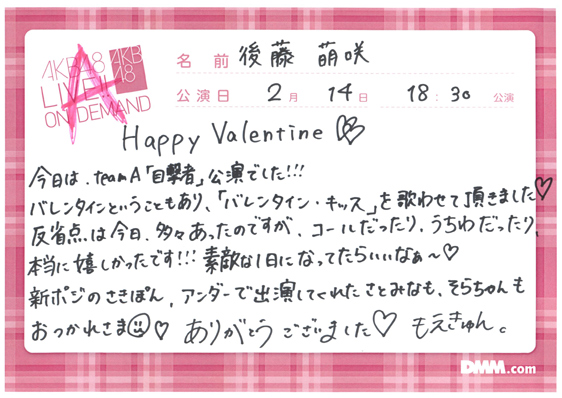 AKB48
LIVE!!
ON DEMAND
AKB
48
A
名前 後藤 萌咲
公演日 2月 14日 18:30 公演
Happy Valentine
今日は、teamA「目撃者」公演でした!!!
バレンタインということもあり、「バレンタイン・キッス」を歌わせて頂きました♡
反省点は今日、多々あったのですが、コールだったり、うちわだったり、
本当に嬉しかったです!!! 素敵な1日になってたらいいなぁ〜♡
新ポジのさきぽん、アンダーで出演してくれたさとみなも、そらちゃんも
おつかれさま☺♡ ありがとうございました♡ もえきゅん。
DMM.com